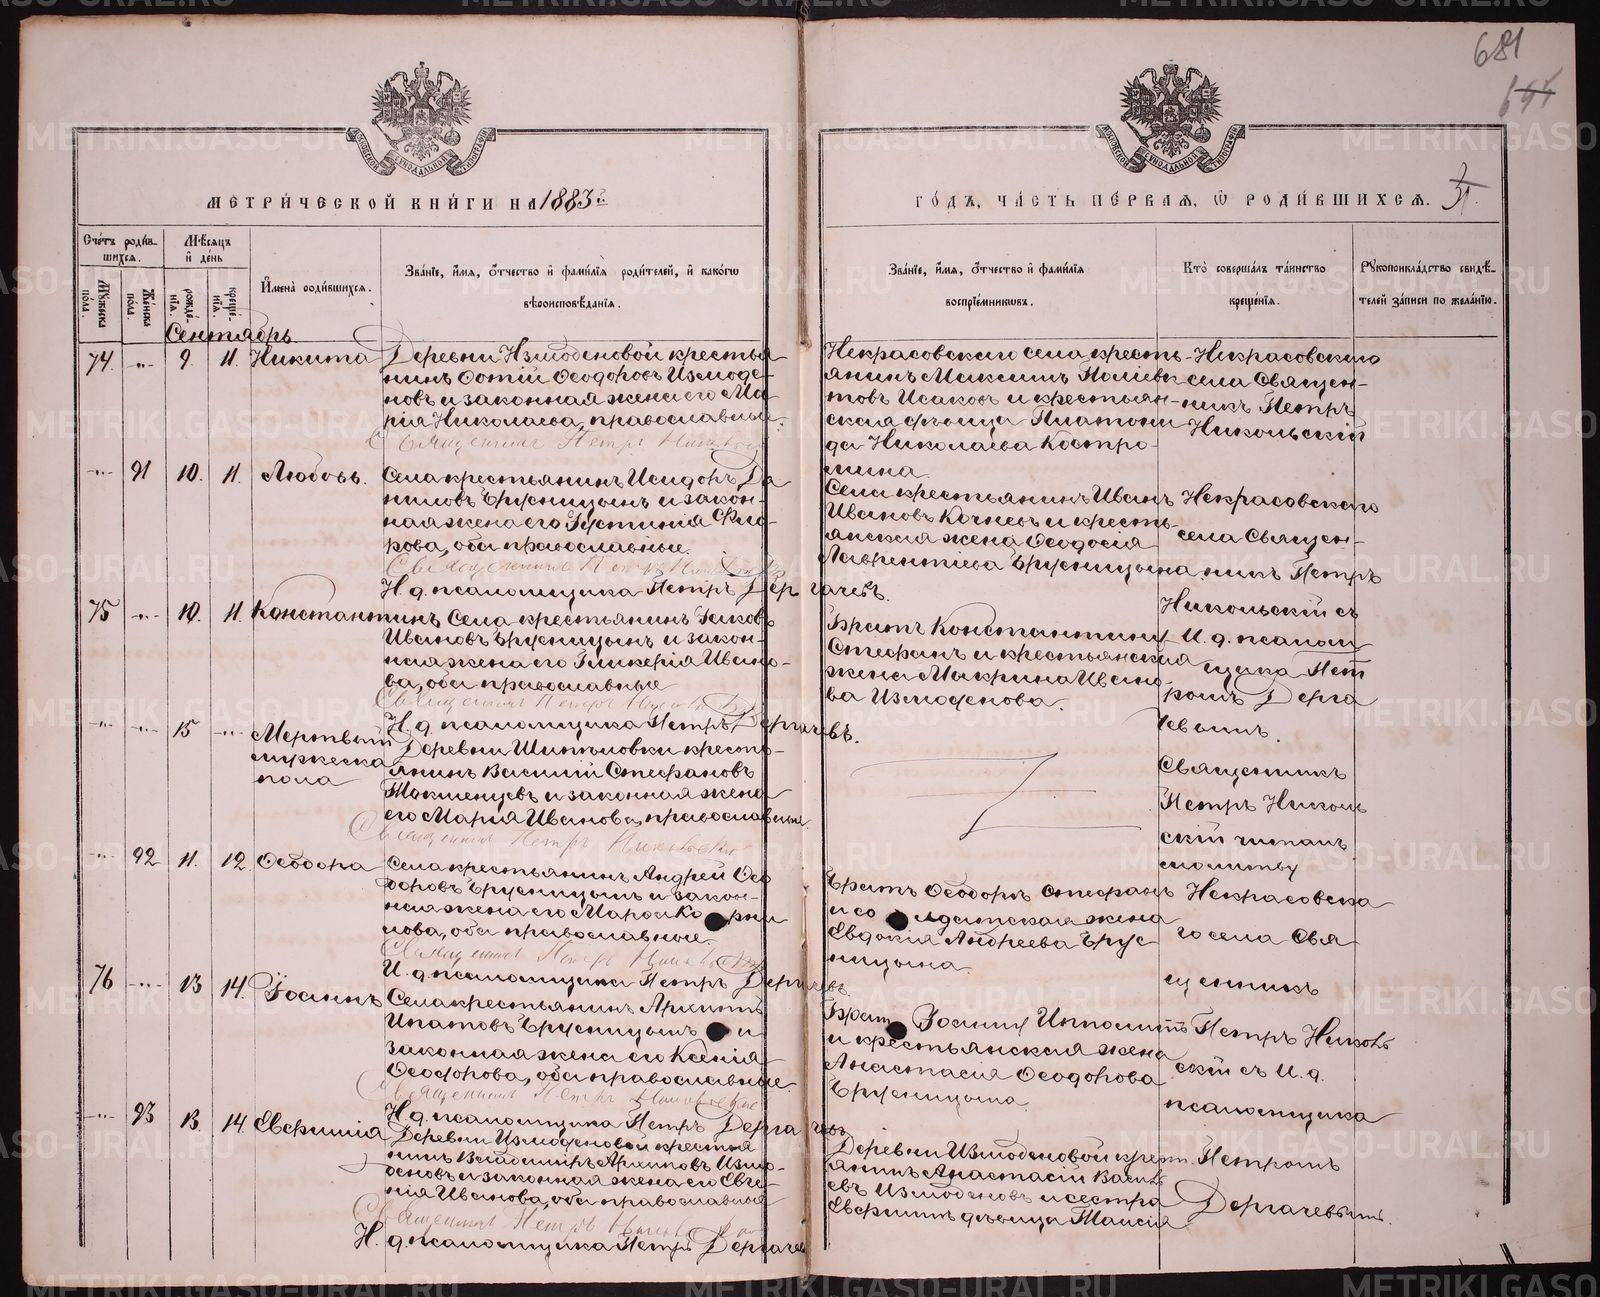 681
МЕТРИЧЕСКОЙ КНИГИ НА 1883й
ГОДЪ, ЧАСТЬ ПЕРВАЯ, Ѡ РОДИВШИХСЯ.
Счетъ родив-
шихся.
Мѣсяцъ
и день
Мужеска
пола.
Женска
пола.
рожде-
нія.
креще-
нія.
Имена родившихся.
Званіе, имя, отчество и фамилія родителей, и какогѡ
вѣроисповѣданія.
Званіе, имя, отчество и фамилія
воспріемникѡвъ.
Кто совершалъ таинство
крещенія.
Рукоприкладство свидѣ-
телей записи по желанію.
Сентябрь
74. -"- 9. 11. Никита
Деревни Измоденовой крестья-
нинъ Фотій Ѳеодоровъ Измоде-
новъ и законная жена его Ма-
рія Николаева, православные.
Священникъ Петръ Никольскій
Некрасовскаго села кресть-
янинъ Максимъ Поліевк-
товъ Исаковъ и крестьян-
ская дѣвица Платони-
да Николаева Костро-
мина.
Некрасовскаго
села Священ-
никъ Петръ
Никольскій
-"- 91 10. 11. Любовь.
Села крестьянинъ Исидоръ Да
ниловъ Брусницынъ и закон-
ная жена его Іустинія Фло-
рова, оба православные.
Священникъ Петръ Никольскій
И. д. псаломщика Петръ Дергачевъ.
Села крестьянинъ Иванъ
Ивановъ Кочневъ и кресть-
янская жена Ѳеодосія
Лаврентіева Брусницына
Некрасовскаго
села Священ-
никъ Петръ
Никольскій съ
И. д. псалом
щика Пет
ромъ Дерга
чевымъ.
75 -"- 10. 11. Константинъ
Села крестьянинъ Іаковъ
Ивановъ Брусницынъ и закон-
ная жена его Гликерія Ивано-
ва, оба православные
Священникъ Петръ Никольскій
И. д. псаломщика Петръ Дергачевъ.
Братъ Константину
Стефанъ и крестьянская
жена Макрина Ивано-
ва Измоденова.
-"- -"- 15 -"- Мертвый
мужеска
пола
Деревни Шипѣловки кресть-
янинъ Василій Стефановъ
Токменцевъ и законная жена
его Марія Иванова, православные.
Священникъ Петръ Никольскій
Священникъ
Петръ Николь
скій читалъ
молитву
-"- 92 11. 12 Ѳеодора
Села крестьянинъ Андрей Ѳео
доровъ Брусницынъ и закон-
ная жена его Марѳа Ко рни
лова, оба православные.
Священникъ Петръ Никольскій
И. д. псаломщика Петръ Дергачевъ.
Братъ Ѳеодоръ Стефанъ
и со лдатская жена
Евдокія Андреева Брус
ницына.
Некрасовска
го села Свя
щенникъ
76 -"- 13 14. Іоаннъ
Села крестьянинъ Архиппъ
Ипатовъ Брусницынъ и
законная жена его Ксенія
Ѳеодорова, оба православные
Священникъ Петръ Никольскій
И. д. псаломщика Петръ Дергачевъ
Братъ Іоанну Ипполитъ
и крестьянская жена
Анастасія Ѳеодорова
Брусницына.
Петръ Николь
скій съ И. д.
псаломщика
-"- 93 13. 14. Евѳимія
Деревни Измоденовой крестья
нинъ Владиміръ Архиповъ Измо-
деновъ и законная жена его Евге-
нія Иванова, оба православные
Священникъ Петръ Никольскій
И. д. псаломщика Петръ Дергачевъ
Деревни Измоденовой крест
янинъ Анастасій Василь
евъ Измоденовъ и сестра
Евѳиміи дѣвица Таисія
Петромъ
Дергачевымъ.
METRIKI.GASO-URAL.RU